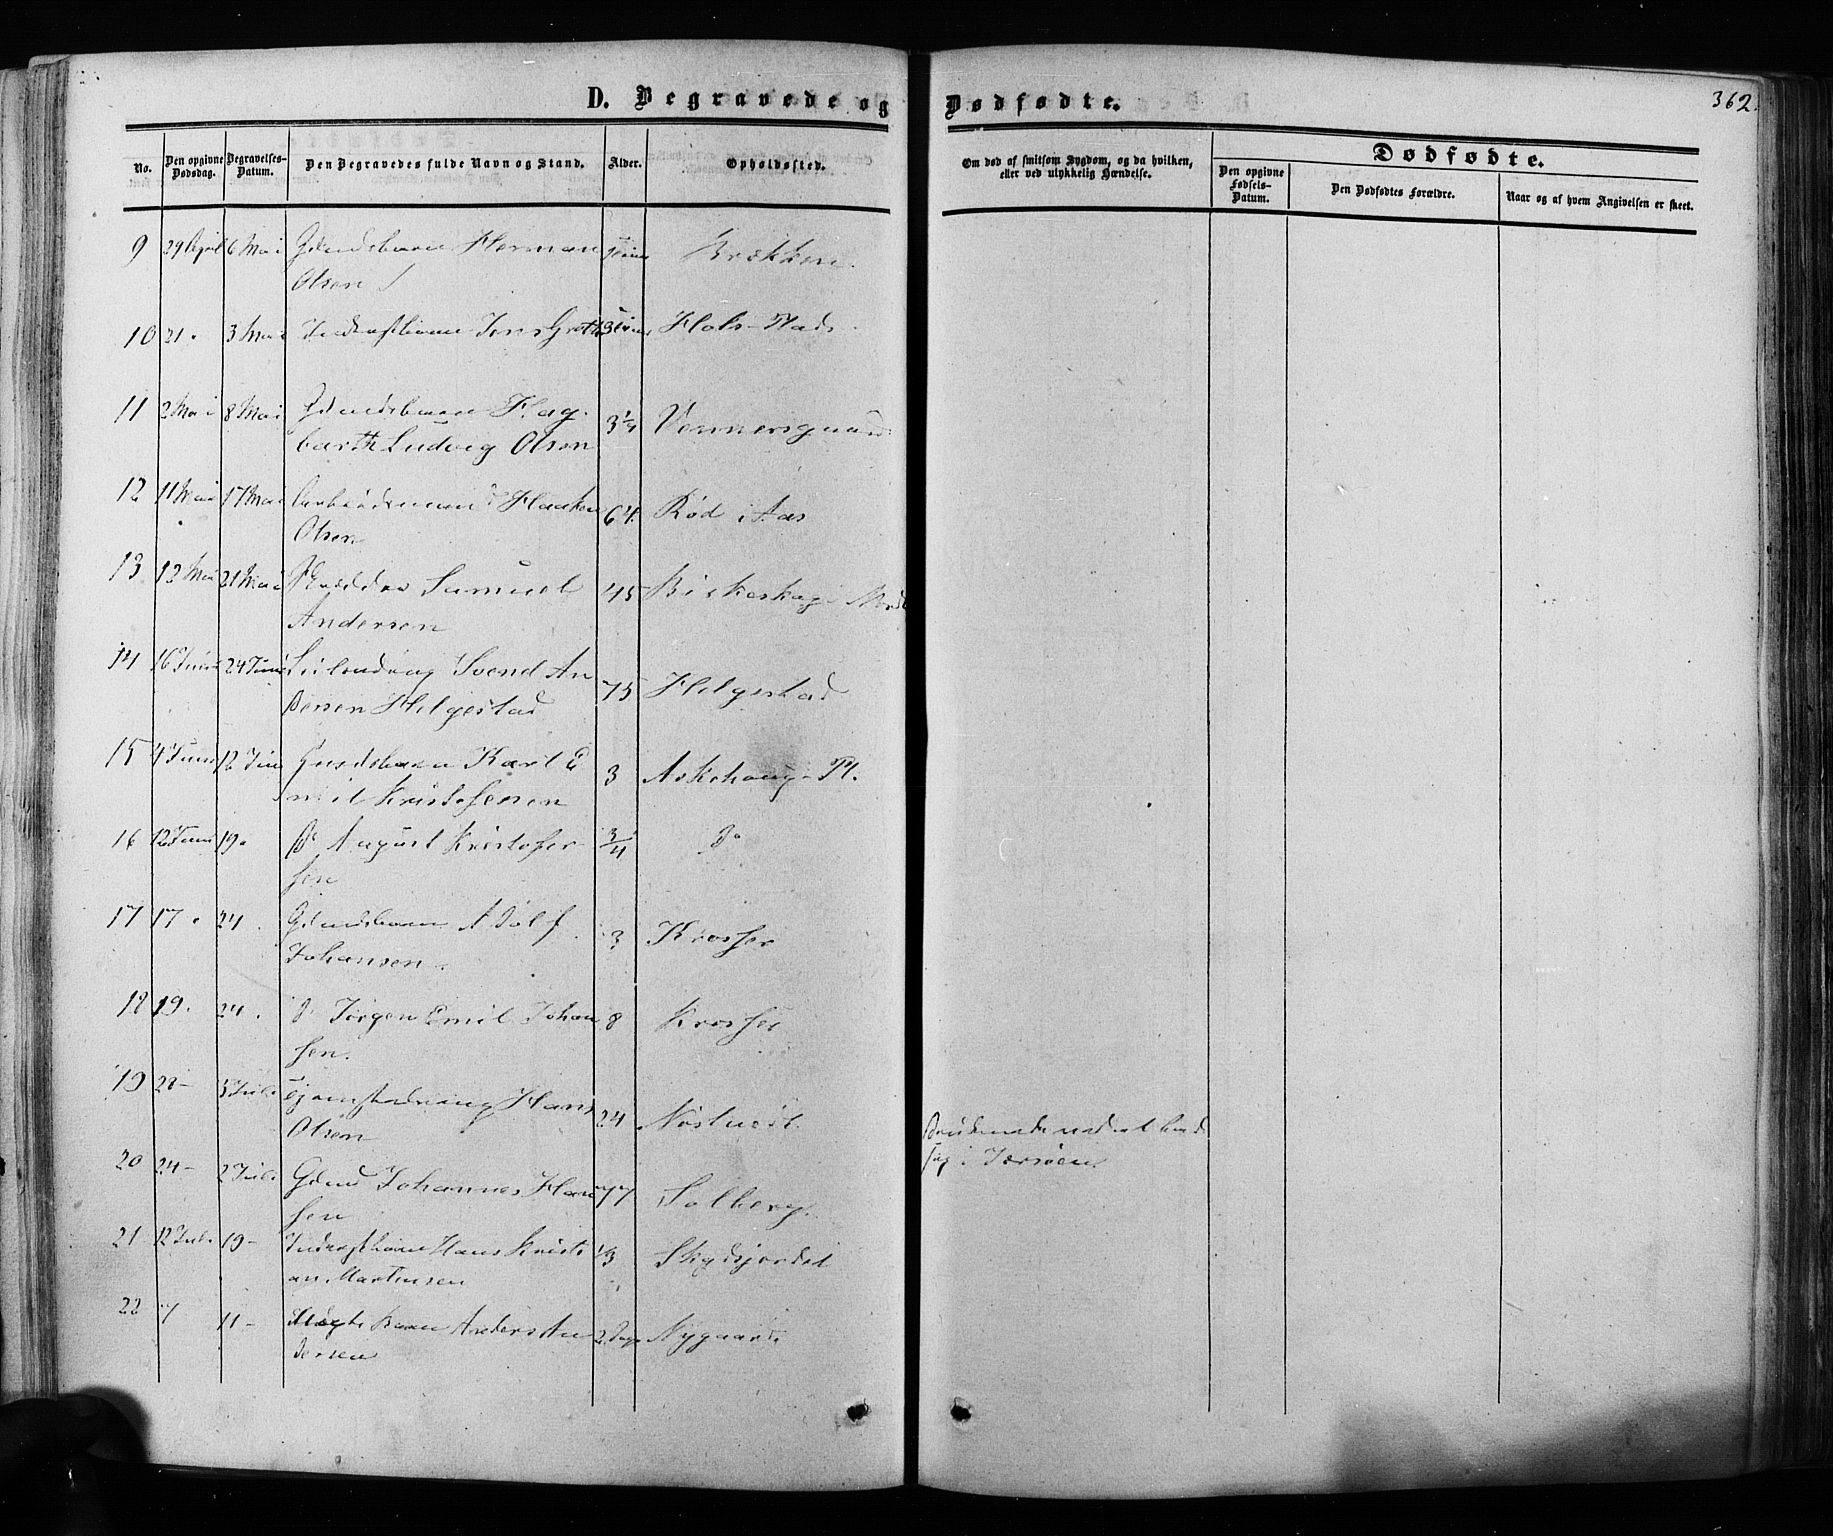 D. Begravede og Dødfødte.
362.
No.
Den opgivne Dødsdag.
Begravelses-Datum.
Den Begravedes fulde Navn og Stand.
Alder.
Opholdssted.
Om død af smitsom Sygdom, og da hvilken, eller ved ulykkelig Hændelse.
Dødfødte.
Den opgivne Fødsels-Datum.
Den Dødfødtes Forældre.
Naar og af hvem Angivelsen er skeet.
9 29 April 6 Mai Gdmdsbarn Herman Brækken.
Olsen
10 21. 3 Mai Inderstbarn Jens
11 2 Mai 8 Mai Gdmdsbarn Hag-
barth Ludvig Olsen 3 1/4
12 11 Mai 17 Mai Arbeidsmand Haaken
Olsen 64. Rød i Aas
13 12 Mai 21 Mai Samuel
Andersen 45
14 16 Juni 24 Juni Svend An
dersen Helgestad 75 Helgestad
15 4 Juni 12 Juni Karl E
mil Kristofersen 3 Askehoug-Pl.
16 12 Juni 19. D° August Kristofer-
sen 3/4 D°
17 17. 24. Gdmdsbarn Adolf
Johansen. 3 Krosser
18 19. 24. D° Jørgen Emil Johan
sen. 8 Krosser
19 28- 5 Juli Hans
Olsen 24 Nøstvedt.
Druknede ved et
i Jersøen.
20 24- 2 Juli Gdmd Johannes Han
sen 77 Solberg.
21 12 Juli 19- Inderstbarn Hans Kristi
an Martinsen 1/3 Skydsjordet
22 7 11- Uægte Barn Anders An
dersen 2 Dage Nygaard